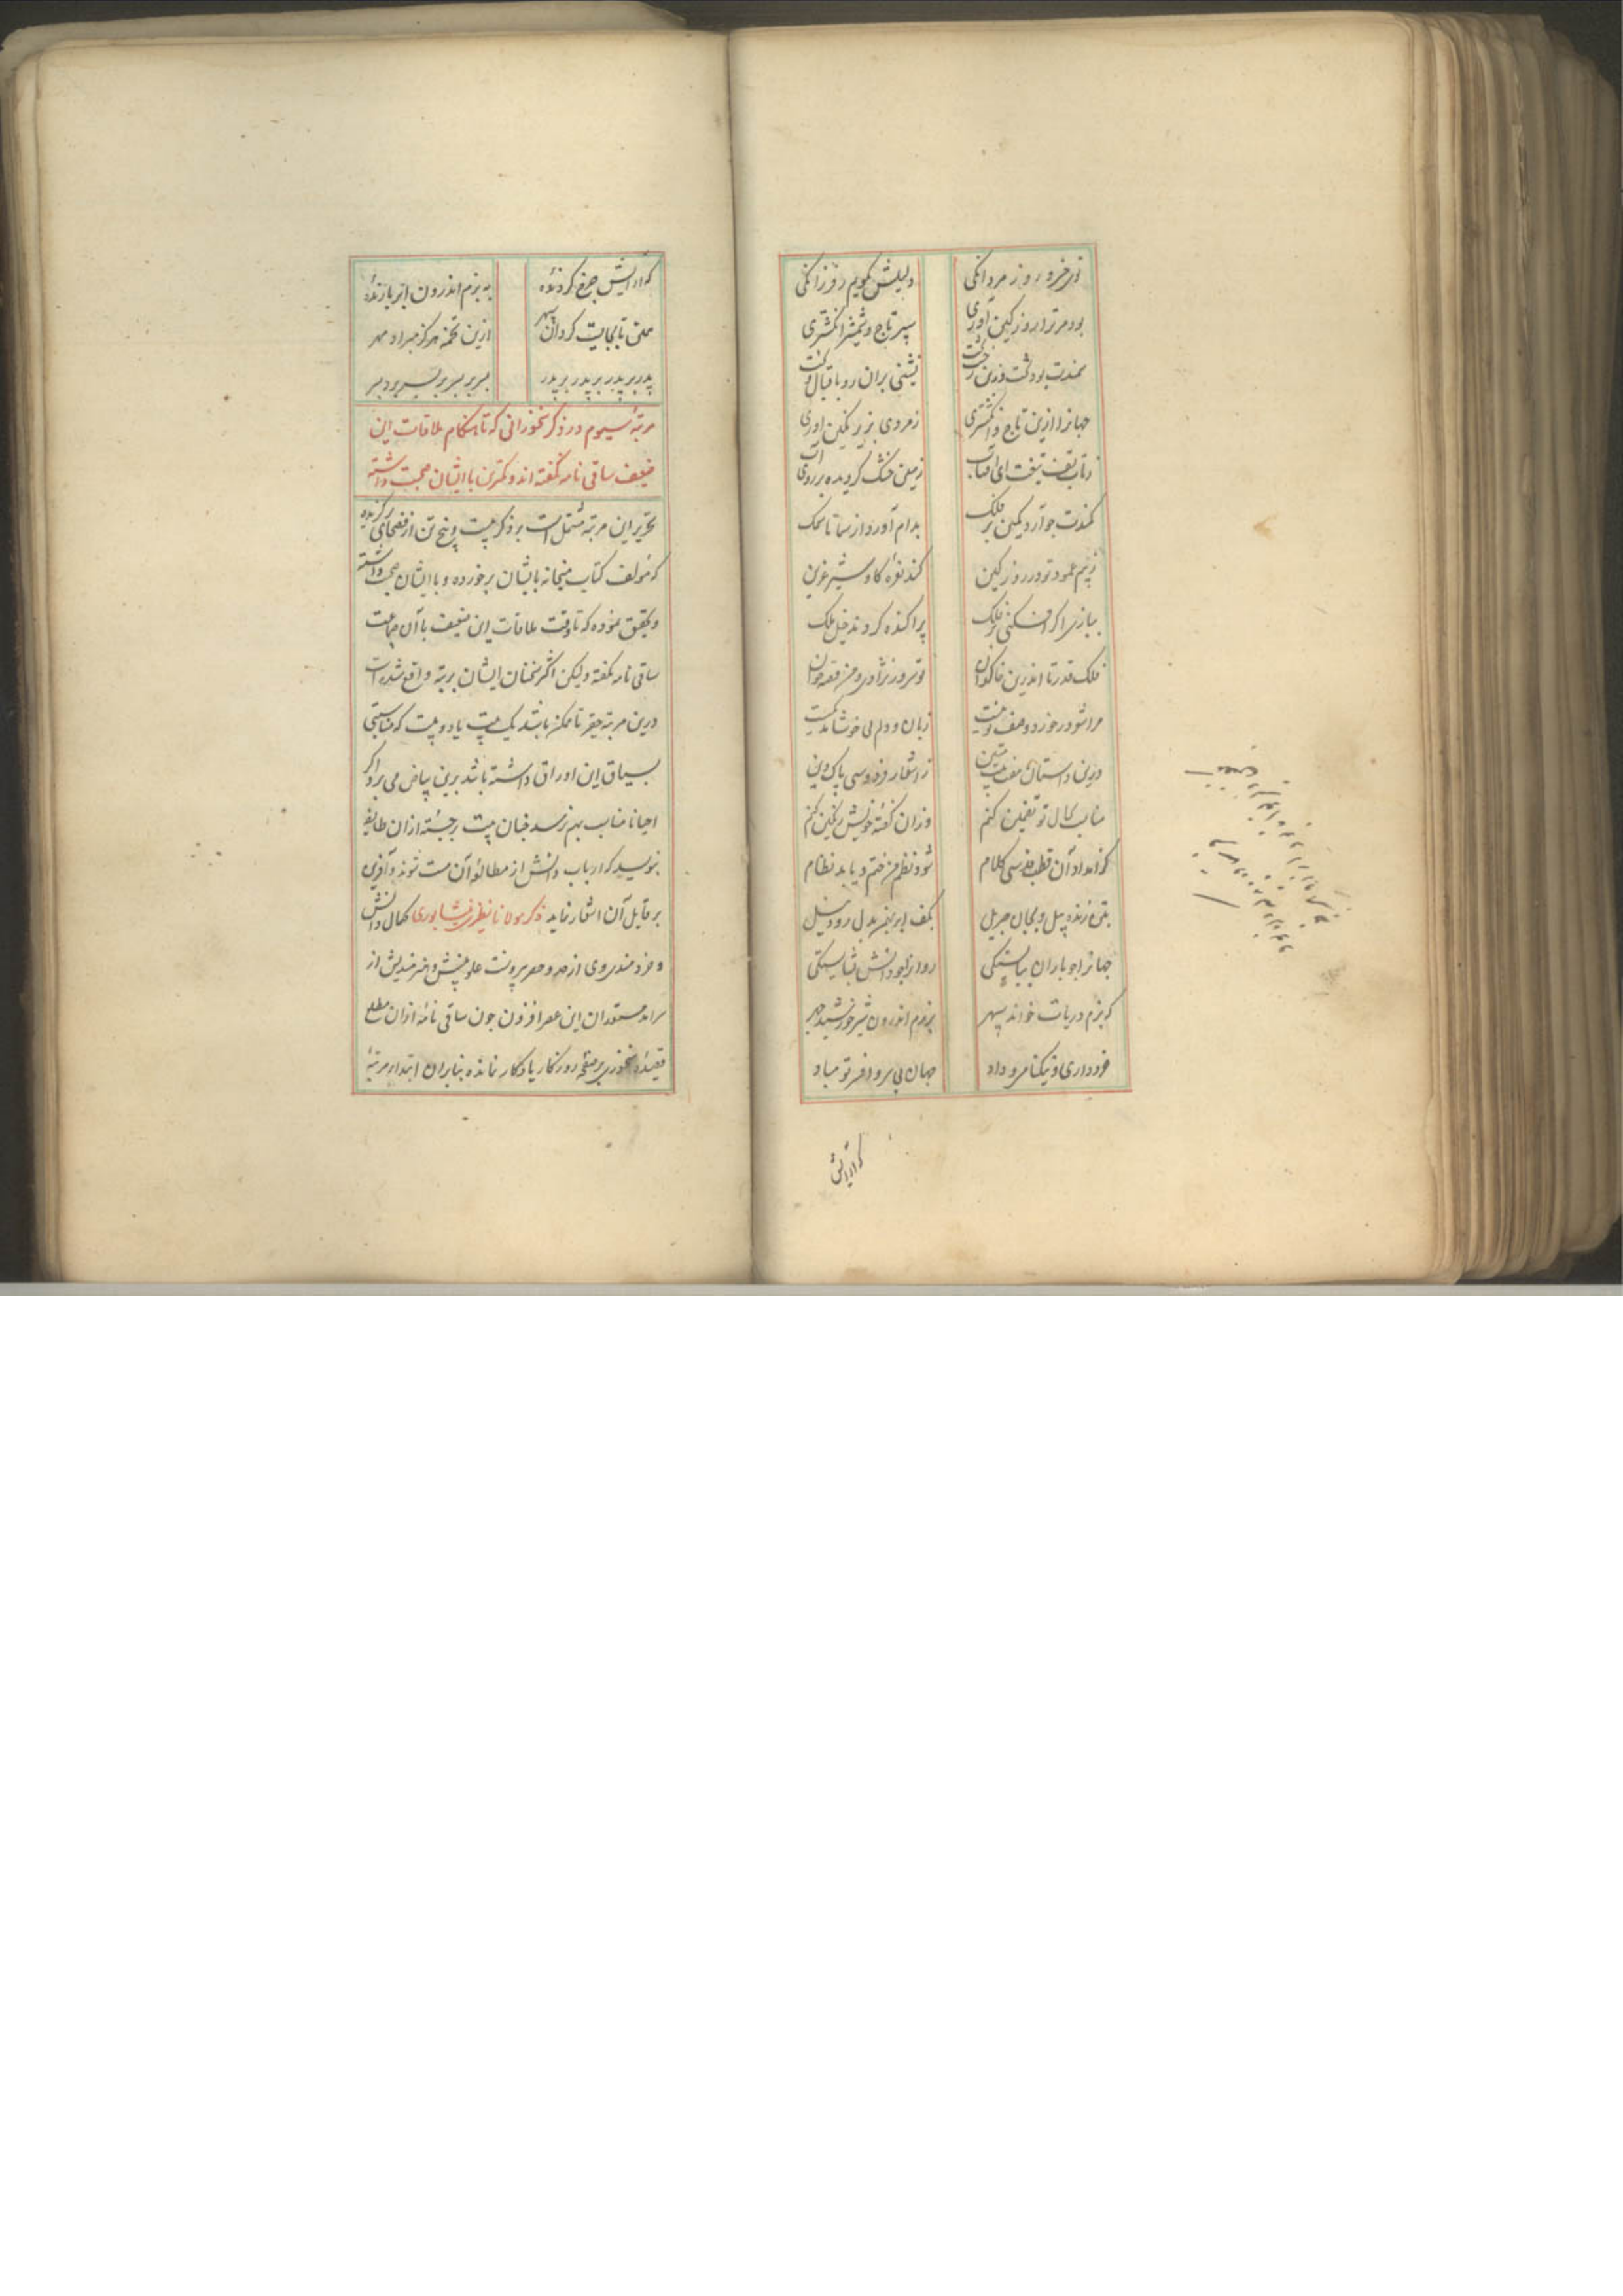 دلیلش بگویم ز فرزانگی
بود مر ترا روز کین آوری سپر تاج و شمشیر انگشتری
سمندت بود تخت و زین نشینی بران رو باقبال و
جهانرا ازین تاج و انگشتری ز مردی بزیر نگین آوری
ز تاب تف تیغت ای آفتاب زمین خشک گردیده بر روی آب
کمندت چو آرد کمین بر فلک بدام آورد از سما تا سمک
ز بیم عمود تو در روز کین کند نعره گاو شیر عرین
ببازی اگر افکنی بر فلک پراکنده گردند خیل ملک
فلک قدرتا اندرین خاکدان تو نوروز نژادی و من قصه خوان
مرا شد در خورد وصف تو نیست زبان و دلم لی خوشامد
درین داستان متین ز اشعار فردوسی پاک دین
مناسب بحال تو تضمین کنم وزان گفته خویش رنگین کنم
کز امداد آن قطب قدسی کلام شود نظم من ختم و یابد نظام
بتن زنده پیل و بجان جبریل بکف ابر بهمن بدل رود نیل
جهانرا چو باران ببایستگی روانرا چو دانش بشایستگی
که بزم دریات خواند سپهر برزم اندرون شیر خورشید چهر
خرد داری و نیکنامی و داد جهان بی سر و افسر تو مباد
که آرایش
که آرایش چرخ گردنده به بزم اندرون ابر بارنده
همی تا بجایست گردان سپهر ازین تخمه هرگز مبراد مهر
پدر بر پدر بر پدر بر پدر پسر بر پسر بر پسر بر پسر
مرتبه سیوم در ذکر سخنورانی که تا هنگام ملاقات این
ضعیف ساقی نامه نگفته اند و کمترین با ایشان صحبت داشته
تحریر این مرتبه مشتمل است بر ذکر بیست و پنج تن از فصحای برگزیده
که مؤلف کتاب میخانه بایشان برخورده و با ایشان صحبت داشته
و تحقیق نموده که تا وقت ملاقات این ضعیف با آن جماعت
ساقی نامه نگفته و لیکن اکثر سخنان ایشان بر بته واقع شده است
درین مرتبه حقیر تا ممکن باشد یک بیت یا دو بیت که مناسبتی
بسیاق این اوراق داشته باشد برین بیاض می برد اگر
احیانا مناسب بهم نرسد چنان بیت برجسته ازان طایفه
نویسد که ارباب دانش از مطالعه آن مست شوند و آفرین
بر قایل آن اشعار نماید ذکر مولانا نظیری نیشابوری کمال دانش
و خردمندی وی از حد و حصر بیرونست علو بینش و هنرمندیش از
سرآمد مستعدان این عصر افزون چون ساقی نامه ازان مطلع
قصیده سخنوری بر صفحه روزگار یادگار نمانده بنابران ابتداء مرتبه